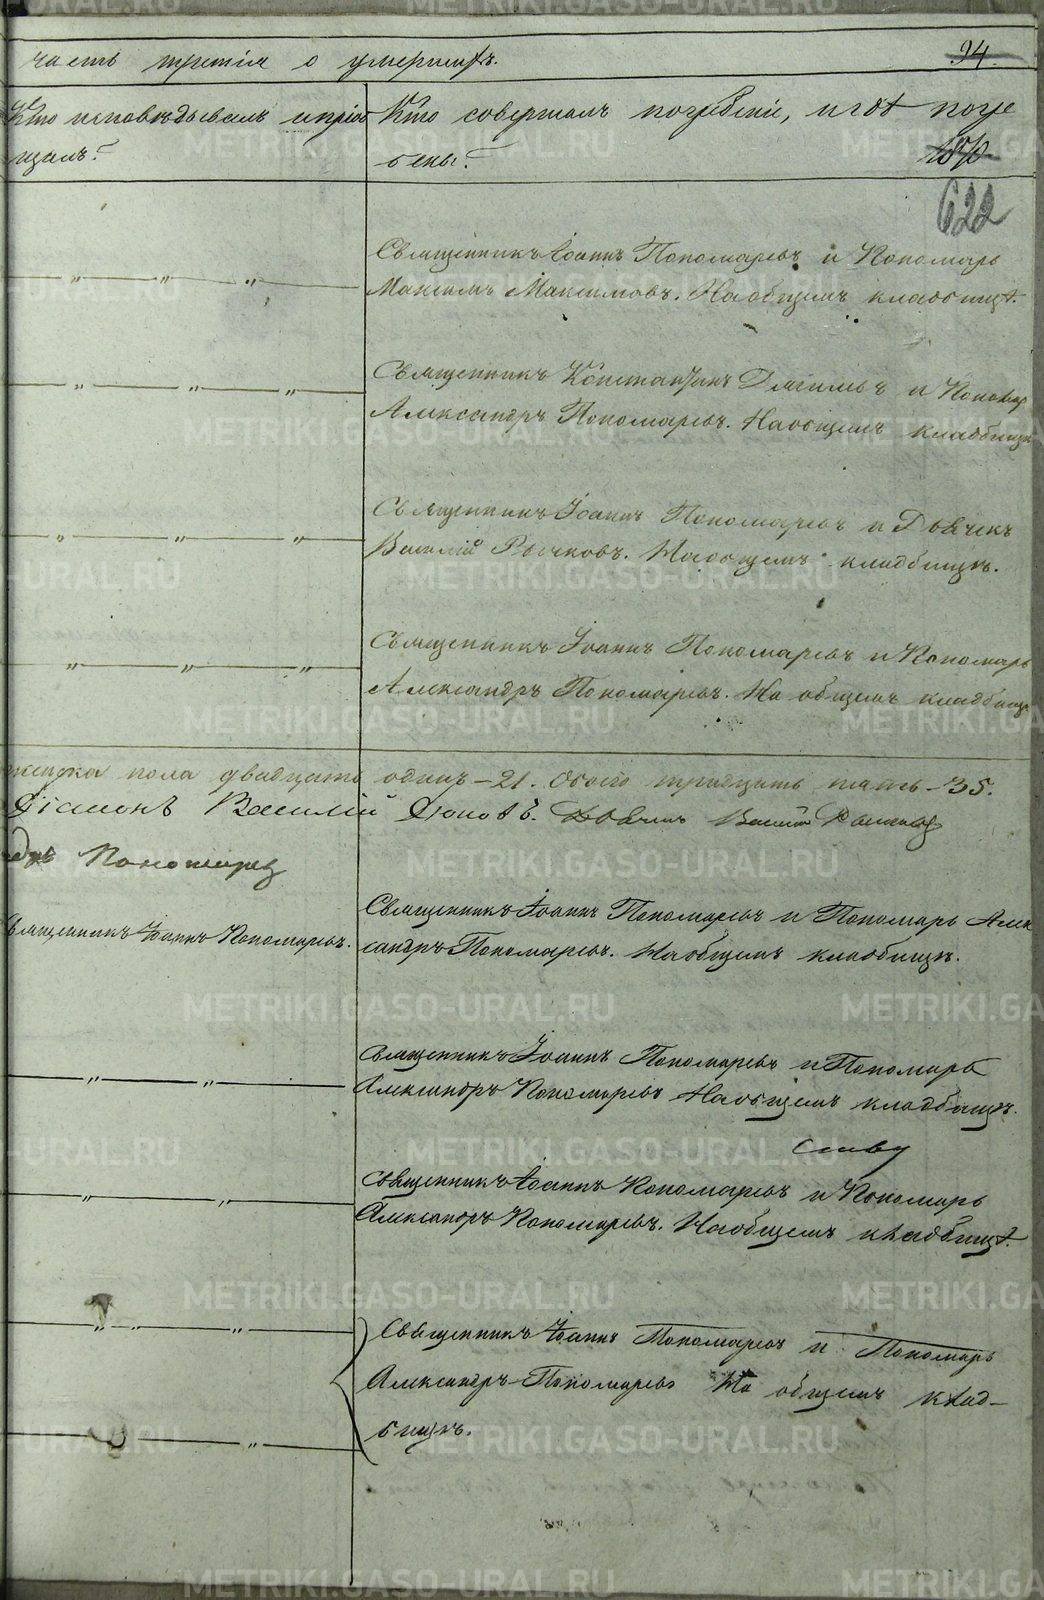 часть третія о умершихъ.
94
Кто исповѣдывалъ и пріоб
щалъ?
Кто совершалъ погребеніе, и гдѣ погре
бены?
622
Священникъ Іоаннъ Пономаревъ и Пономарь
Максимъ Максимовъ. На общемъ кладбищѣ.
Священникъ Константинъ и Пономар
Александръ Пономаревъ. На общемъ кладбищѣ
Священникъ Іоаннъ Пономаревъ и Дьячекъ
Василій Рычковъ. На общемъ кладбищѣ.
Священникъ Іоаннъ Пономаревъ и Пономарь
Александръ Пономаревъ. На общемъ кладбищѣ
женска пола двадцать одинъ - 21. Обоего тридцать пять - 35.
Діаконъ Василій Поповъ. Дьячекъ Василій Рычковъ
дръ Пономаревъ
Священникъ Іоаннъ Пономаревъ.
Священникъ Іоаннъ Пономаревъ и Пономарь Алек
сандръ Пономаревъ. На общемъ кладбищѣ.
Священникъ Іоаннъ Пономаревъ и Пономарь
Александръ Пономаревъ На общемъ кладбищѣ.
Священникъ Іоаннъ Пономаревъ и Пономарь
Александръ Пономаревъ. На общемъ кладбищѣ.
Священникъ Іоаннъ Пономаревъ и Пономарь
Александръ Пономаревъ На общемъ клад-
бищѣ.
METRIKI.GASO-URAL.RU